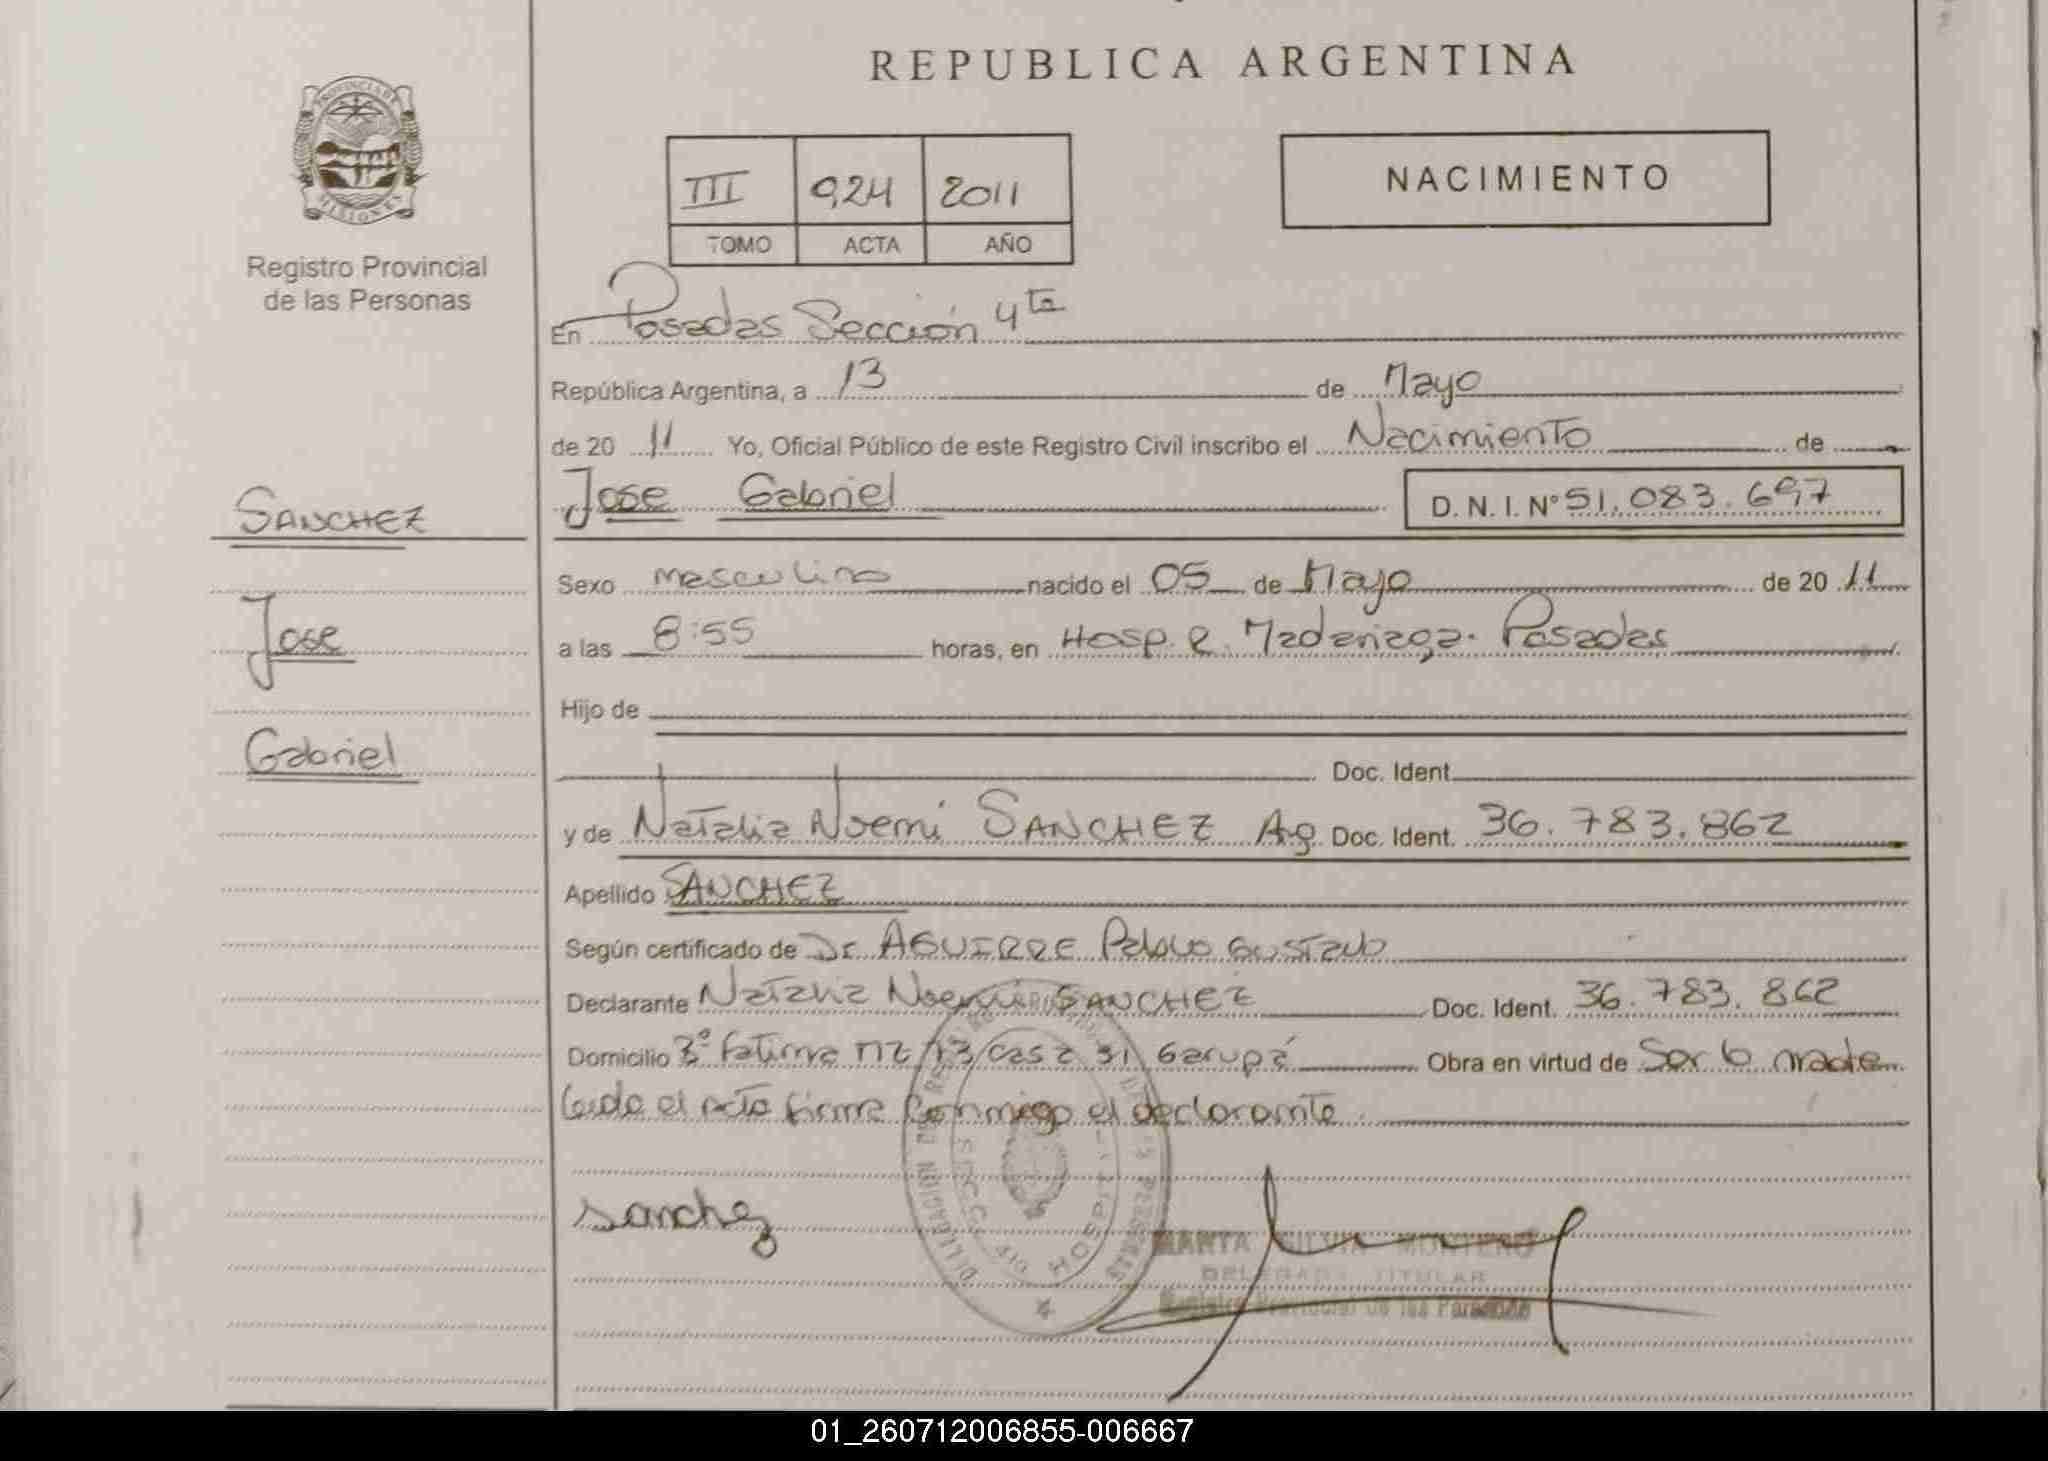 REPUBLICA ARGENTINA
PROVINCIA DE
MISIONES
Registro Provincial
de las Personas
III 924 2011
TOMO ACTA AÑO
NACIMIENTO
En Posadas Sección 4ta
República Argentina, a 13 de Mayo
de 20 11 Yo, Oficial Público de este Registro Civil inscribo el Nacimiento de
Jose Gabriel D. N. I. Nº 51.083.697
SANCHEZ
Jose
Gabriel
Sexo masculino nacido el 05 de Mayo de 20 11
a las 8:55 horas, en Hosp. R. Madariaga. Posadas
Hijo de
Doc. Ident.
y de Natalia Noemi SANCHEZ Arg Doc. Ident. 36.783.862
Apellido SANCHEZ
Según certificado de Dr. AGUIRRE Pablo Gustavo
Declarante Natalia Noemi SANCHEZ Doc. Ident. 36.783.862
Domicilio Bº Fatima mz 13 casa 31 Garupá Obra en virtud de Ser la madre
Leida el acta firma conmigo el declarante.
Sanchez
MARTA SILVIA MONTERO
DELEGADA TITULAR
Registro Provincial de las Personas
01_260712006855-006667